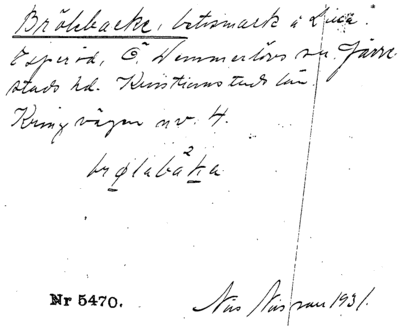 Brölebacke, betesmark å Lilla
Esperöd, Ö. Vemmerlövs sn. Järre-
stads hd. Kristianstads län.
Kring vägen nv. 4.
brølabaka
2
Nr 5470.
Nils Nilsson 1931.